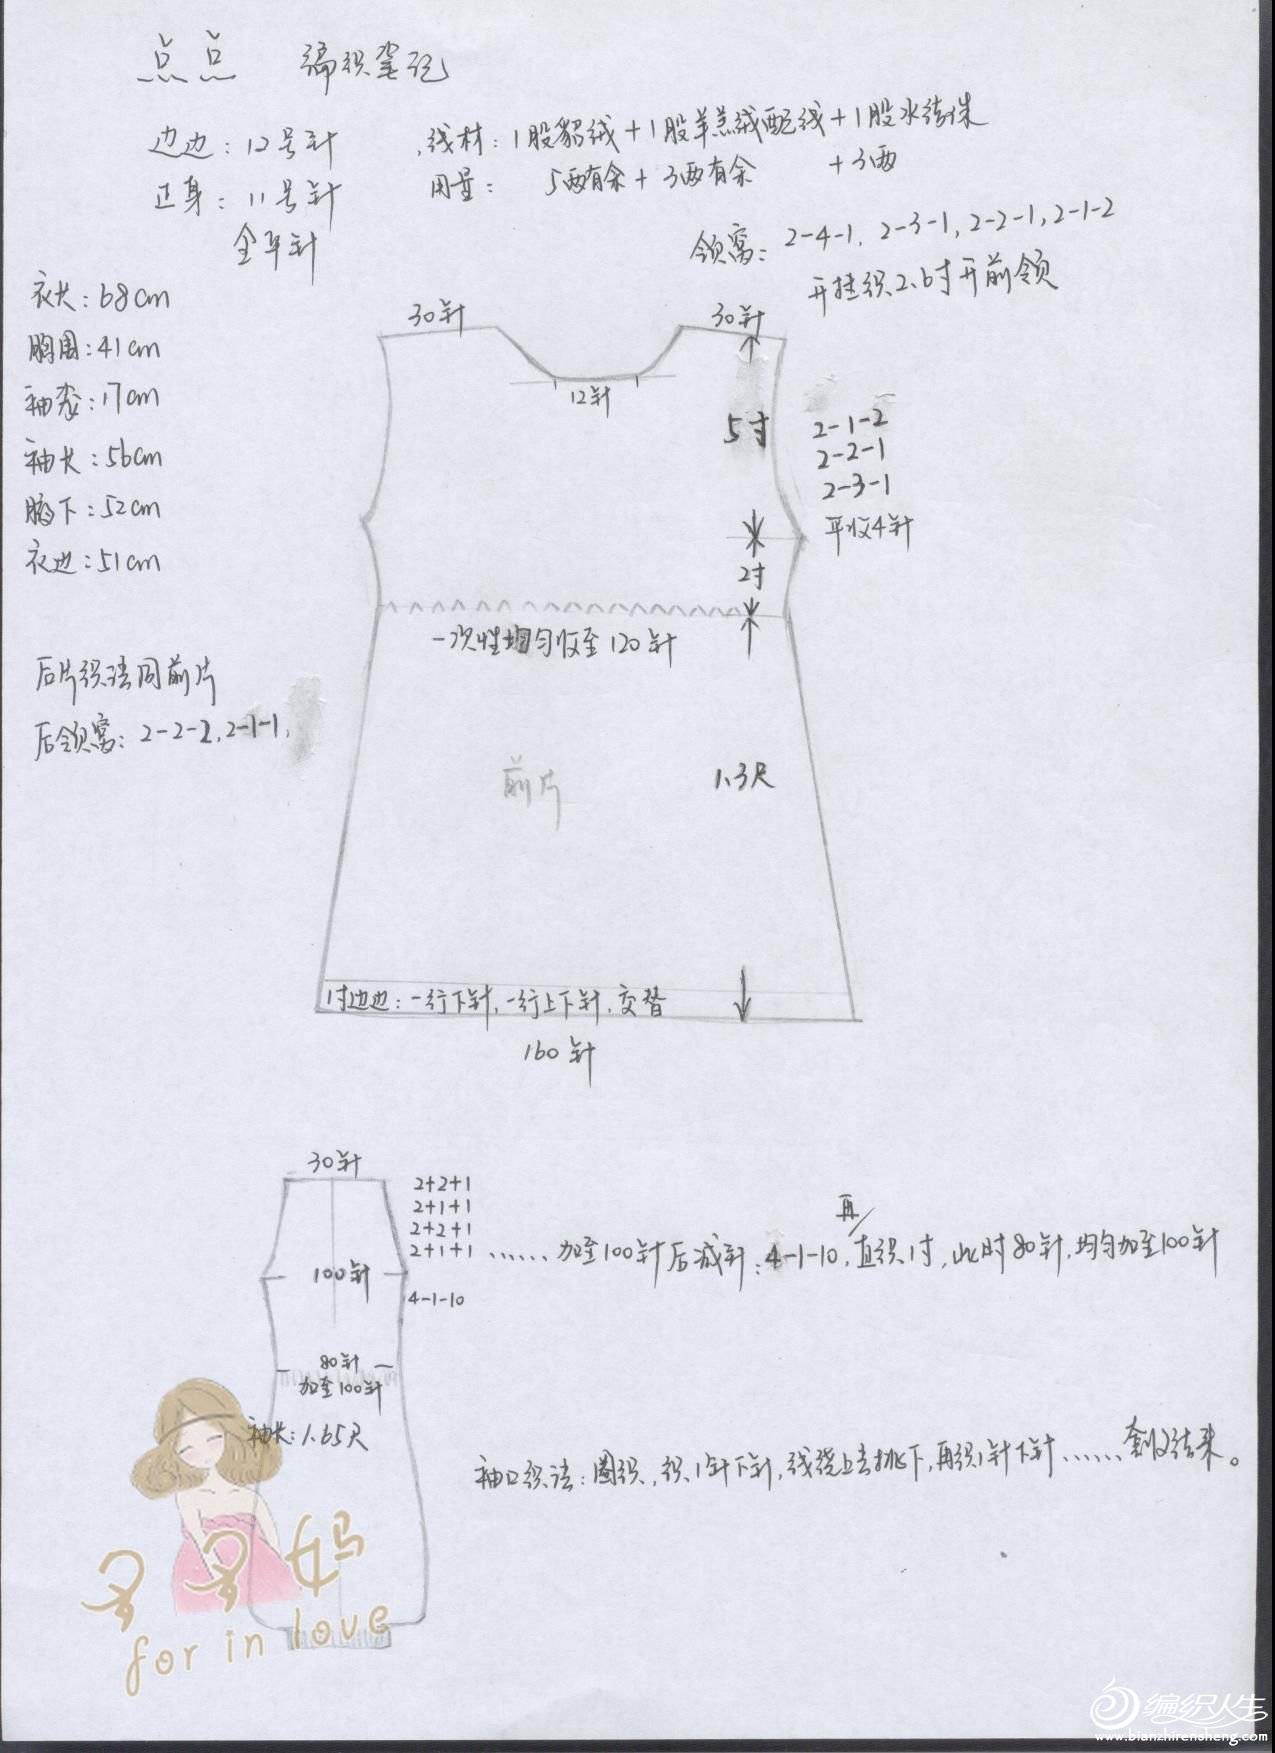 点点 编织笔记
边边：12号针
正身：11号针
全平针
线材：1股貂绒+1股羊羔绒配线+1股水结珠
用量：5两有余+3两有余 +3两
领窝：2-4-1，2-3-1，2-2-1，2-1-2
开挂织2.6寸开前领
衣长：68cm
胸围：41cm
袖笼：17cm
袖长：56cm
腋下：52cm
衣边：51cm
30针
30针
12针
5寸
2-1-2
2-2-1
2-3-1
平收4针
2寸
一次性均匀收至120针
后片织法同前片
后领窝：2-2-2，2-1-1，
前片
1.3尺
1寸边边：一行下针，一行上下针，交替
160针
30针
2+2+1
2+1+1
2+2+1
2+1+1 …… 加至100针后减针：4-1-10，再直织1寸，此时80针，均匀加至100针
100针
4-1-10
80针
加至100针
袖长：1.65尺
袖口织法：圈织，织1针下针，线绕上去挑下，再织1针下针……套收结束。
for in love
编织人生
www.bianzhirensheng.com